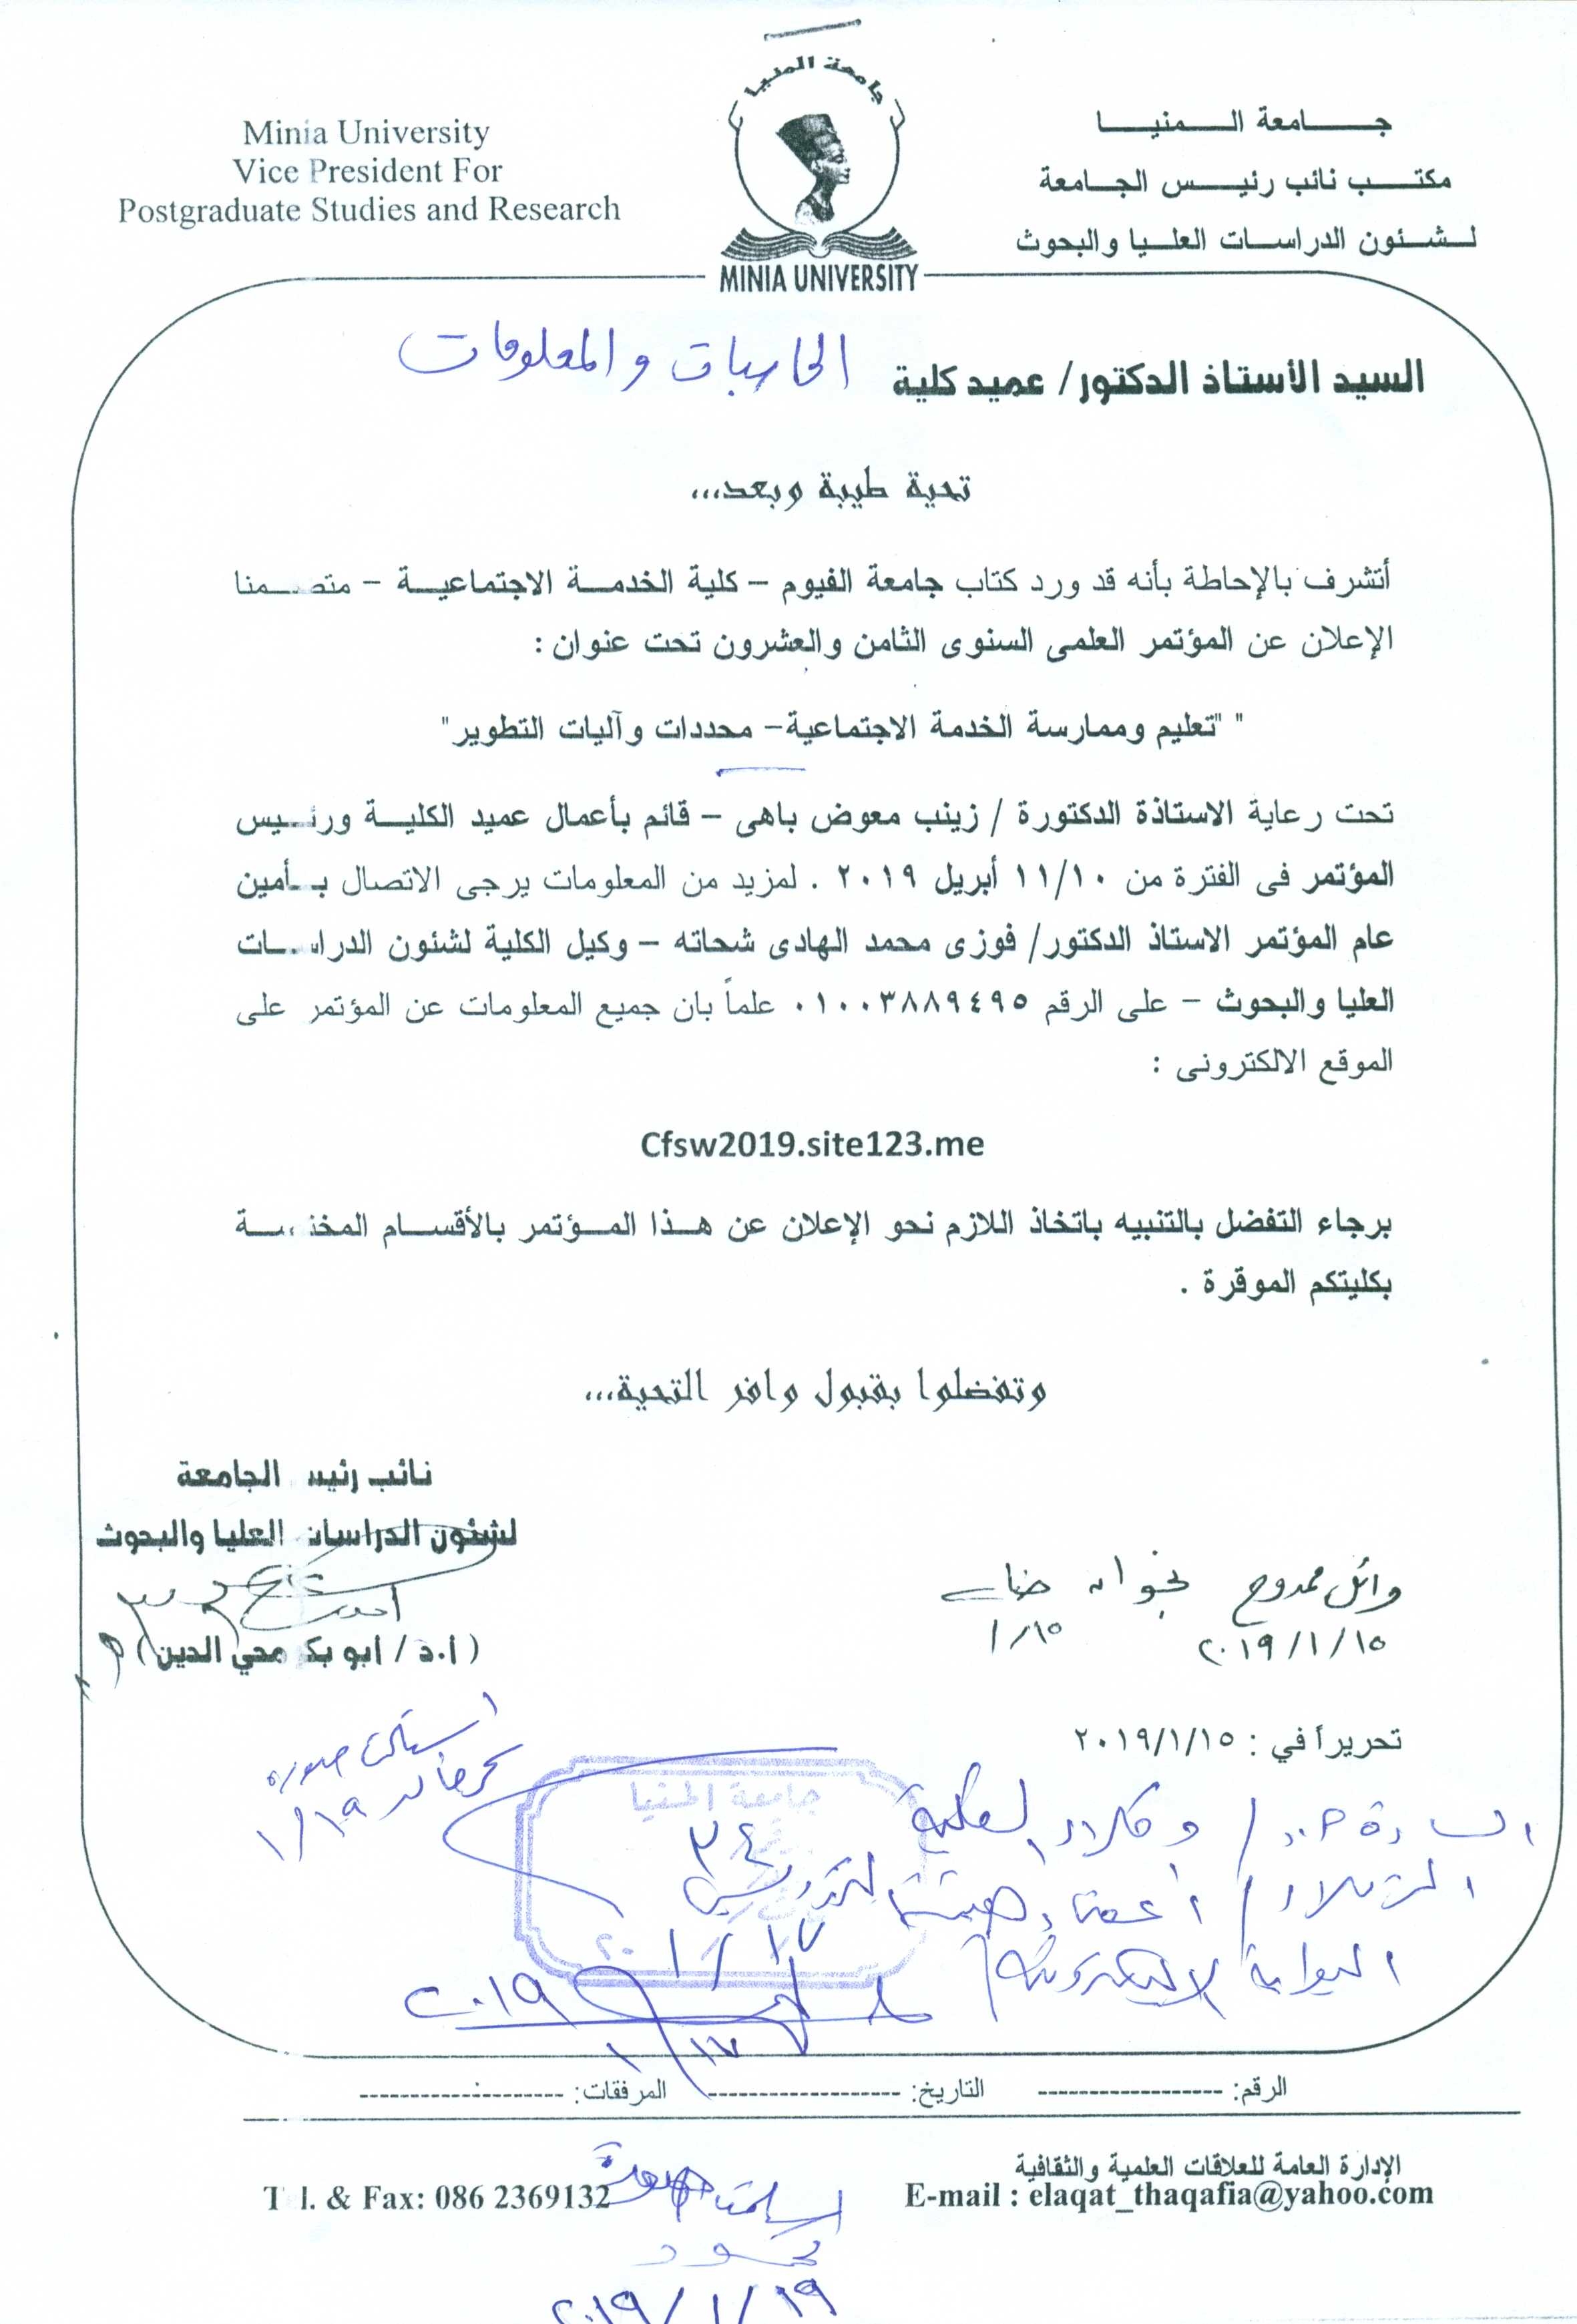 جامعة المنيا
Minia University
Vice President For
Postgraduate Studies and Research
جامعة المنيا
مكتب نائب رئيس الجامعة
لشئون الدراسات العليا والبحوث
MINIA UNIVERSITY
السيد الأستاذ الدكتور/ عميد كلية الحاسبات والمعلومات
تحية طيبة وبعد...
أتشرف بالإحاطة بأنه قد ورد كتاب جامعة الفيوم – كلية الخدمة الاجتماعية – متضمنا
الإعلان عن المؤتمر العلمى السنوى الثامن والعشرون تحت عنوان :
" "تعليم وممارسة الخدمة الاجتماعية– محددات وآليات التطوير"
تحت رعاية الاستاذة الدكتورة / زينب معوض باهى – قائم بأعمال عميد الكلية ورئيس
المؤتمر فى الفترة من ١١/١٠ أبريل ٢٠١٩ . لمزيد من المعلومات يرجى الاتصال بأمين
عام المؤتمر الاستاذ الدكتور/ فوزى محمد الهادى شحاته – وكيل الكلية لشئون الدراسات
العليا والبحوث – على الرقم ٠١٠٠٣٨٨٩٤٩٥ علماً بان جميع المعلومات عن المؤتمر على
الموقع الالكترونى :
Cfsw2019.site123.me
برجاء التفضل بالتنبيه باتخاذ اللازم نحو الإعلان عن هذا المؤتمر بالأقسام المختصة
بكليتكم الموقرة .
وتفضلوا بقبول وافر التحية...
نائب رئيس الجامعة
لشئون الدراسات العليا والبحوث
(ا.د / ابو بكر محي الدين)
وائل ممدوح نجوان
٢٠١٩/١/١٥ ١/١٥
تحريراً في : ٢٠١٩/١/١٥
استلمت صورة
١/١٩
جامعة المنيا
٣٤
السادة / وكلاء الكلية
الزملاء / أعضاء هيئة التدريس
البوابة الإلكترونية
١/١٧
٢٠١٩
١/١٧
الرقم: ------------------ التاريخ: ------------------- المرفقات: --------------------
الإدارة العامة للعلاقات العلمية والثقافية
T l. & Fax: 086 2369132 E-mail : elaqat_thaqafia@yahoo.com
استلمت صورة
محمود
٢٠١٩/١/١٩